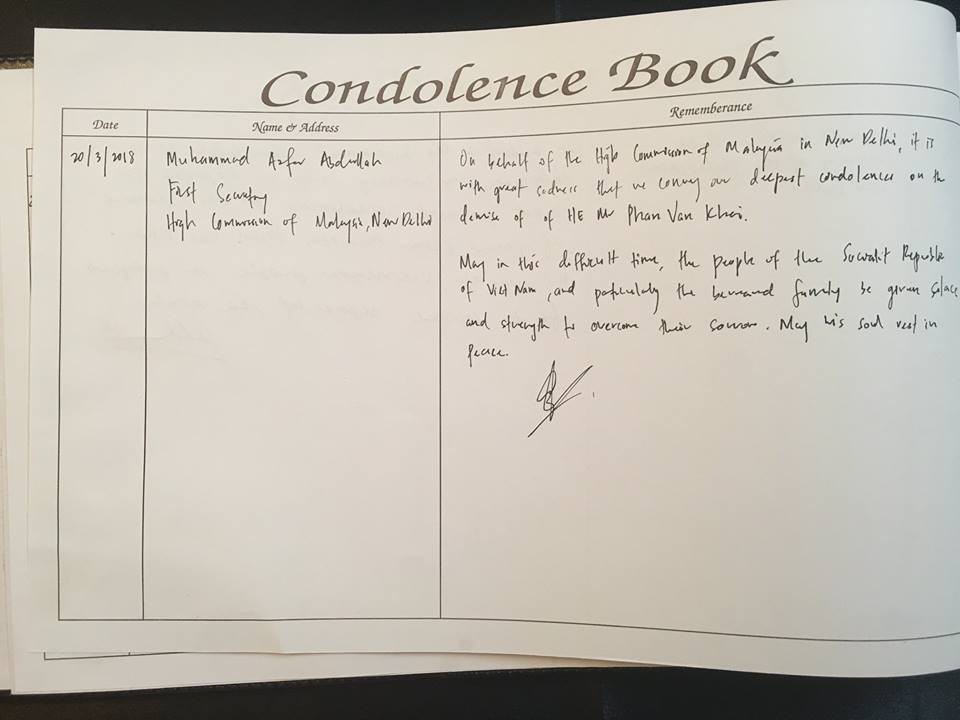 Condolence Book
Date
Name & Address
Rememberance
20/3/2018
Muhammad Azfar Abdullah
First Secretary
High Commission of Malaysia, New Delhi
On behalf of the High Commission of Malaysia in New Delhi, it is
with great sadness that we convey our deepest condolences on the
demise of of HE Mr Phan Van Khai.
May in this difficult time, the people of the Socialist Republic
of Viet Nam, and particularly the bereaved family be given solace
and strength to overcome their sorrow. May his soul rest in
peace.